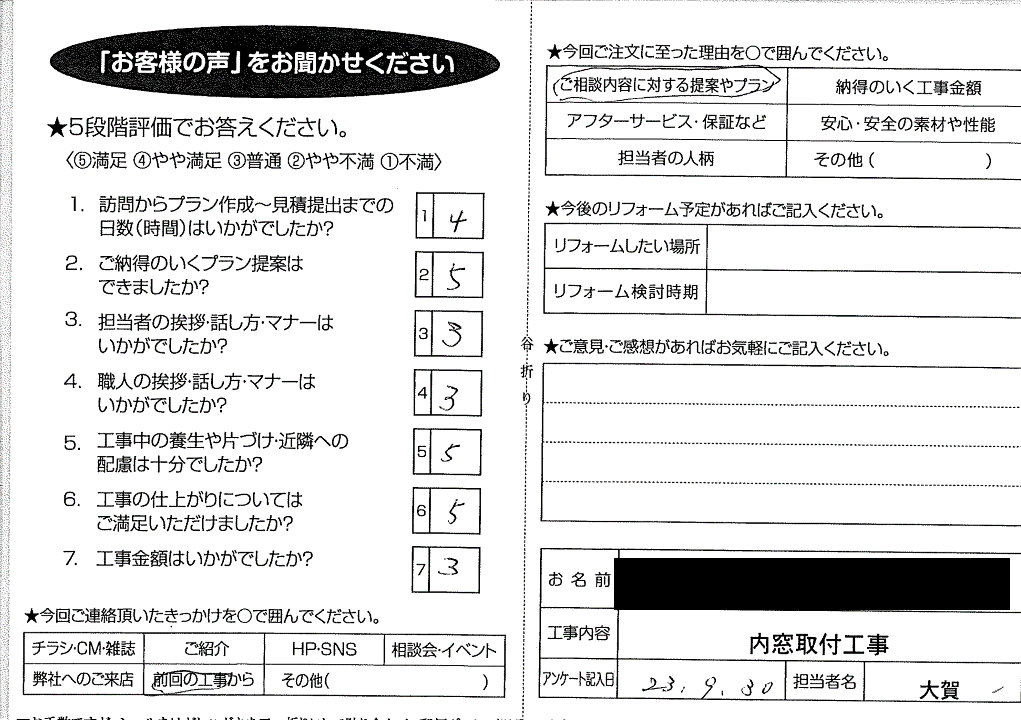 「お客様の声」をお聞かせください
★5段階評価でお答えください。
〈⑤満足 ④やや満足 ③普通 ②やや不満 ①不満〉
1. 訪問からプラン作成～見積提出までの
日数(時間)はいかがでしたか?
1 4
2. ご納得のいくプラン提案は
できましたか?
2 5
3. 担当者の挨拶・話し方・マナーは
いかがでしたか?
3 3
4. 職人の挨拶・話し方・マナーは
いかがでしたか?
4 3
5. 工事中の養生や片づけ・近隣への
配慮は十分でしたか?
5 5
6. 工事の仕上がりについては
ご満足いただけましたか?
6 5
7. 工事金額はいかがでしたか?
7 3
★今回ご連絡頂いたきっかけを〇で囲んでください。
チラシ・CM・雑誌 ご紹介 HP・SNS 相談会・イベント
弊社へのご来店 前回の工事から その他( )
谷折り
★今回ご注文に至った理由を〇で囲んでください。
ご相談内容に対する提案やプラン 納得のいく工事金額
アフターサービス・保証など 安心・安全の素材や性能
担当者の人柄 その他( )
★今後のリフォーム予定があればご記入ください。
リフォームしたい場所
リフォーム検討時期
★ご意見・ご感想があればお気軽にご記入ください。
お名前
工事内容 内窓取付工事
アンケート記入日 23.9.30 担当者名 大賀